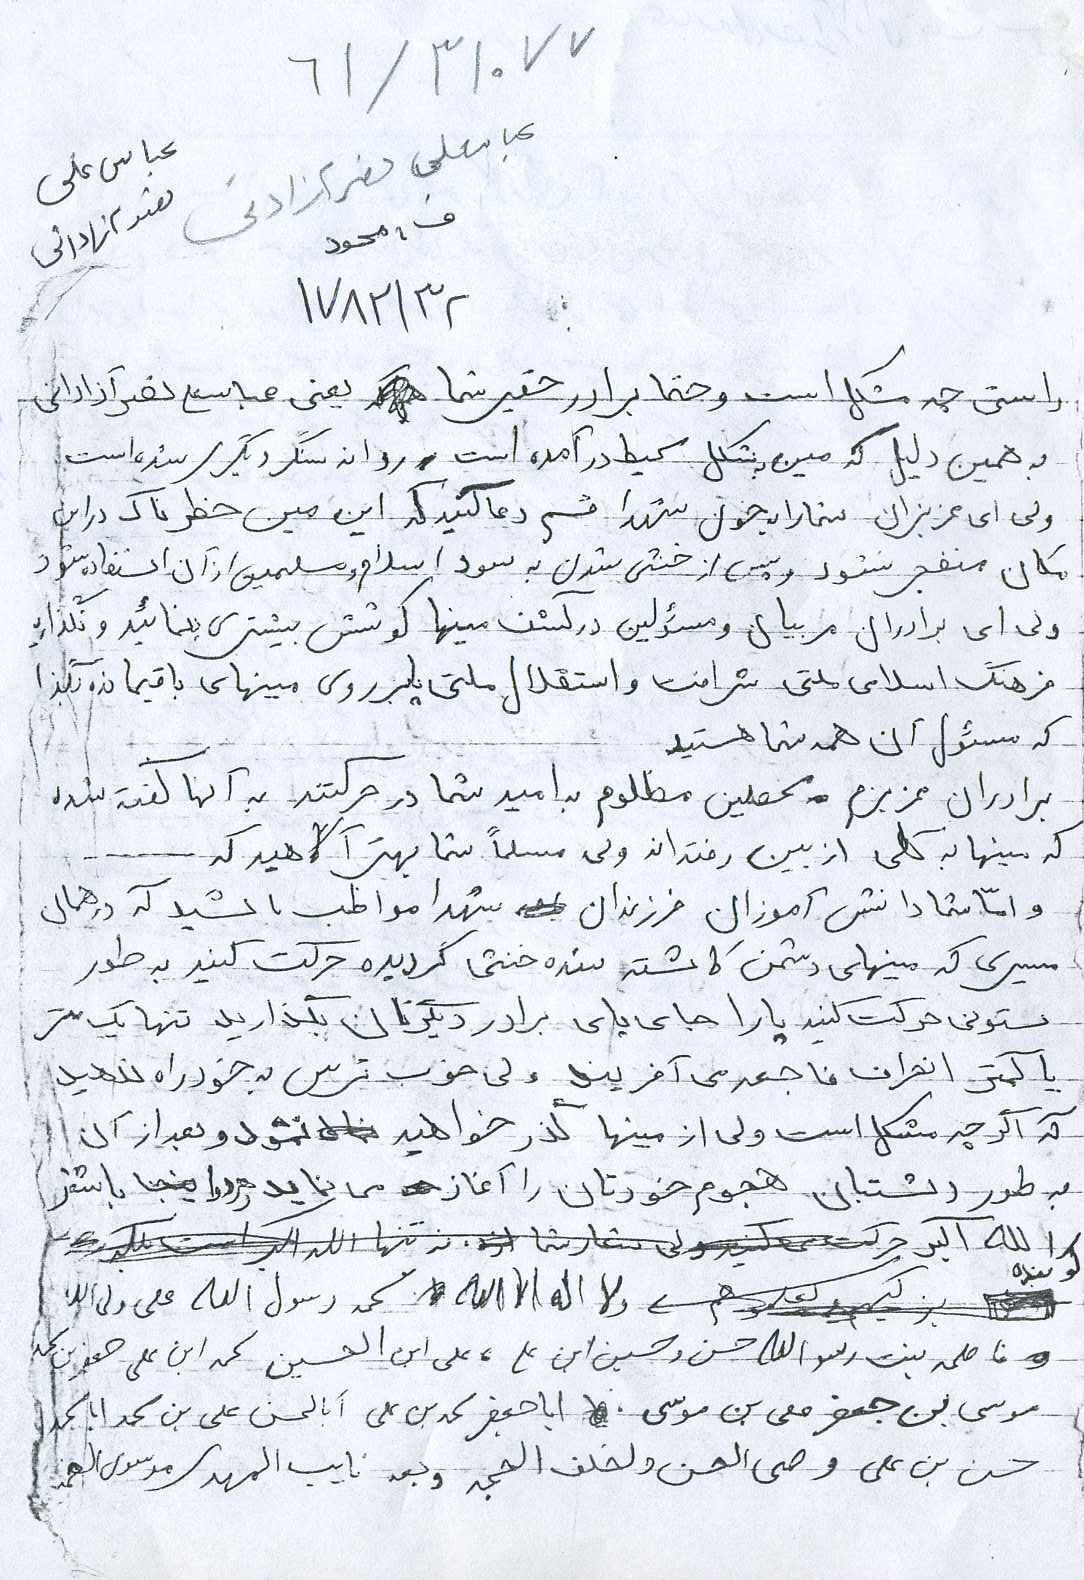 ۶۱/۳۱۰۷۷
عباسعلی نصرآزادانی
عباس علی
نصر آزادانی
ف. محمود
۱۷۸۲۱۳۲
راستی چه مشکل است و حتما برادر حقیر شما یعنی عباسعلی نصرآزادانی
به همین دلیل که مین بشکل محیط در آمده است روانه سنگر دیگری شده است
ولی ای عزیزان شما را به خون شهدا قسم دعا کنید که این مین خطرناک در این
مکان منفجر نشود و پس از خنثی شدن به سود اسلام و مسلمین از آن استفاده شود
ولی ای برادران مربیان و مسئولین در کشف مینها کوشش بیشتری بنمائید و نگذارید
فرهنگ اسلامی ملتی شرافت و استقلال ملتی پا بر روی مینهای باقیمانده بگذارد
که مسئول آن همه شما هستید
برادران عزیزم محصلین مظلوم به امید شما در حرکتند به آنها گفته شده
که مینها به کلی از بین رفته‌اند ولی مسلماً شما بهتر آگاهید که
و امّا شما دانش آموزان فرزندان شهدا مواظب باشید که در همان
مسیری که مینهای دشمن کاشته شده خنثی گردیده حرکت کنید به طور
ستونی حرکت کنید پا را جای پای برادر دیگرتان بگذارید تنها یک متر
یا کمتر انحراف فاجعه می آفریند ولی خوف ترس به خود راه ندهید
که اگر چه مشکل است ولی از مینها گذر خواهید نمود و بعد از آن
به طور دشتبان هجوم خودتان را آغاز می نماید
الله اکبر حرکت می کنید ولی شعار شما نه تنها الله اکبر است بلکه
کوبنده
ولا اله الا الله محمد رسول الله علی ولی الله
فاطمه بنت رسول الله حسن و حسین ابن علی، علی ابن الحسین محمد ابن علی جعفر بن محمد
موسی بن جعفر علی بن موسی اباجعفر محمد بن علی ابالحسن علی بن محمد ابامحمد
حسن بن علی وصی الحسن ولخلف الحجه و بعد نایب المهدی موسوی الخمینی